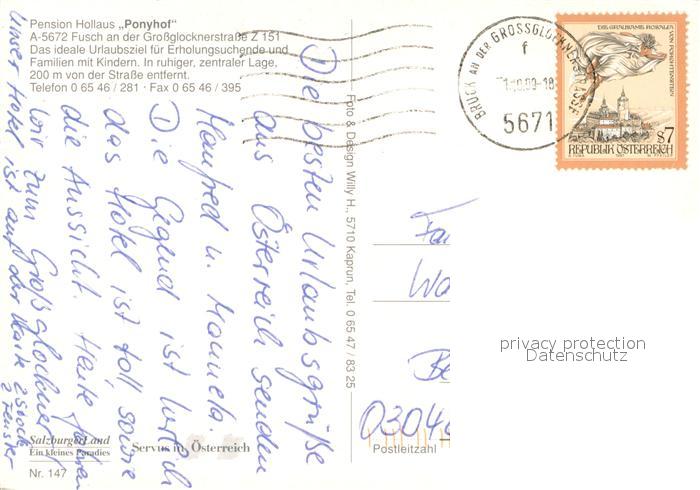 Pension Hollaus „Ponyhof“
A-5672 Fusch an der Großglocknerstraße Z 151
Das ideale Urlaubsziel für Erholungsuchende und
Familien mit Kindern. In ruhiger, zentraler Lage,
200 m von der Straße entfernt.
Telefon 0 65 46 / 281 · Fax 0 65 46 / 395
Die besten Urlaubsgrüße
aus Österreich senden
Manfred u. Manuela.
Die Gegend ist
das Hotel ist toll, sowie
die Aussicht. Heute fahren
wir zum Großglockner.
Unser Hotel ist auf der Karte 2 Stock
2 Fenster
SalzburgerLand
Ein kleines Paradies
Servus in Österreich
Nr. 147
Foto & Design Willy H., 5710 Kaprun, Tel. 0 65 47 / 83 25
BRUCK AN DER GROSSGLOCKNERSTRASSE
f
5671
S7
REPUBLIK ÖSTERREICH
Fa
Wo
Be
0304
Postleitzahl
privacy protection
Datenschutz